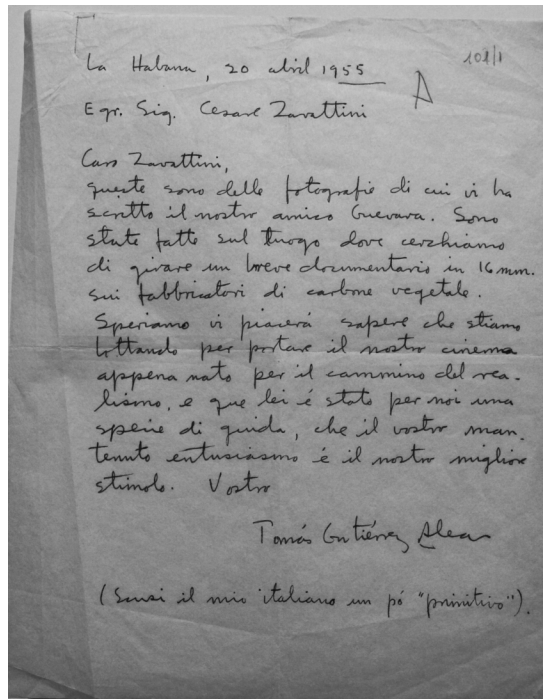 101/1
La Habana, 20 abril 1955
A
Egr. Sig. Cesare Zavattini
Caro Zavattini,
queste sono delle fotografie di cui vi ha
scritto il nostro amico Guevara. Sono
state fatte sul luogo dove cerchiamo
di girare un breve documentario in 16 mm.
sui fabbricatori di carbone vegetale.
Speriamo vi piacerá sapere che stiamo
lottando per portare il nostro cinema
appena nato per il cammino del rea-
lismo, e que lei é stato per noi una
specie di guida, che il vostro man-
tenuto entusiasmo é il nostro migliore
stimolo. Vostro
Tomás Gutiérrez Alea
(Scusi il mio italiano un pó "primitivo").